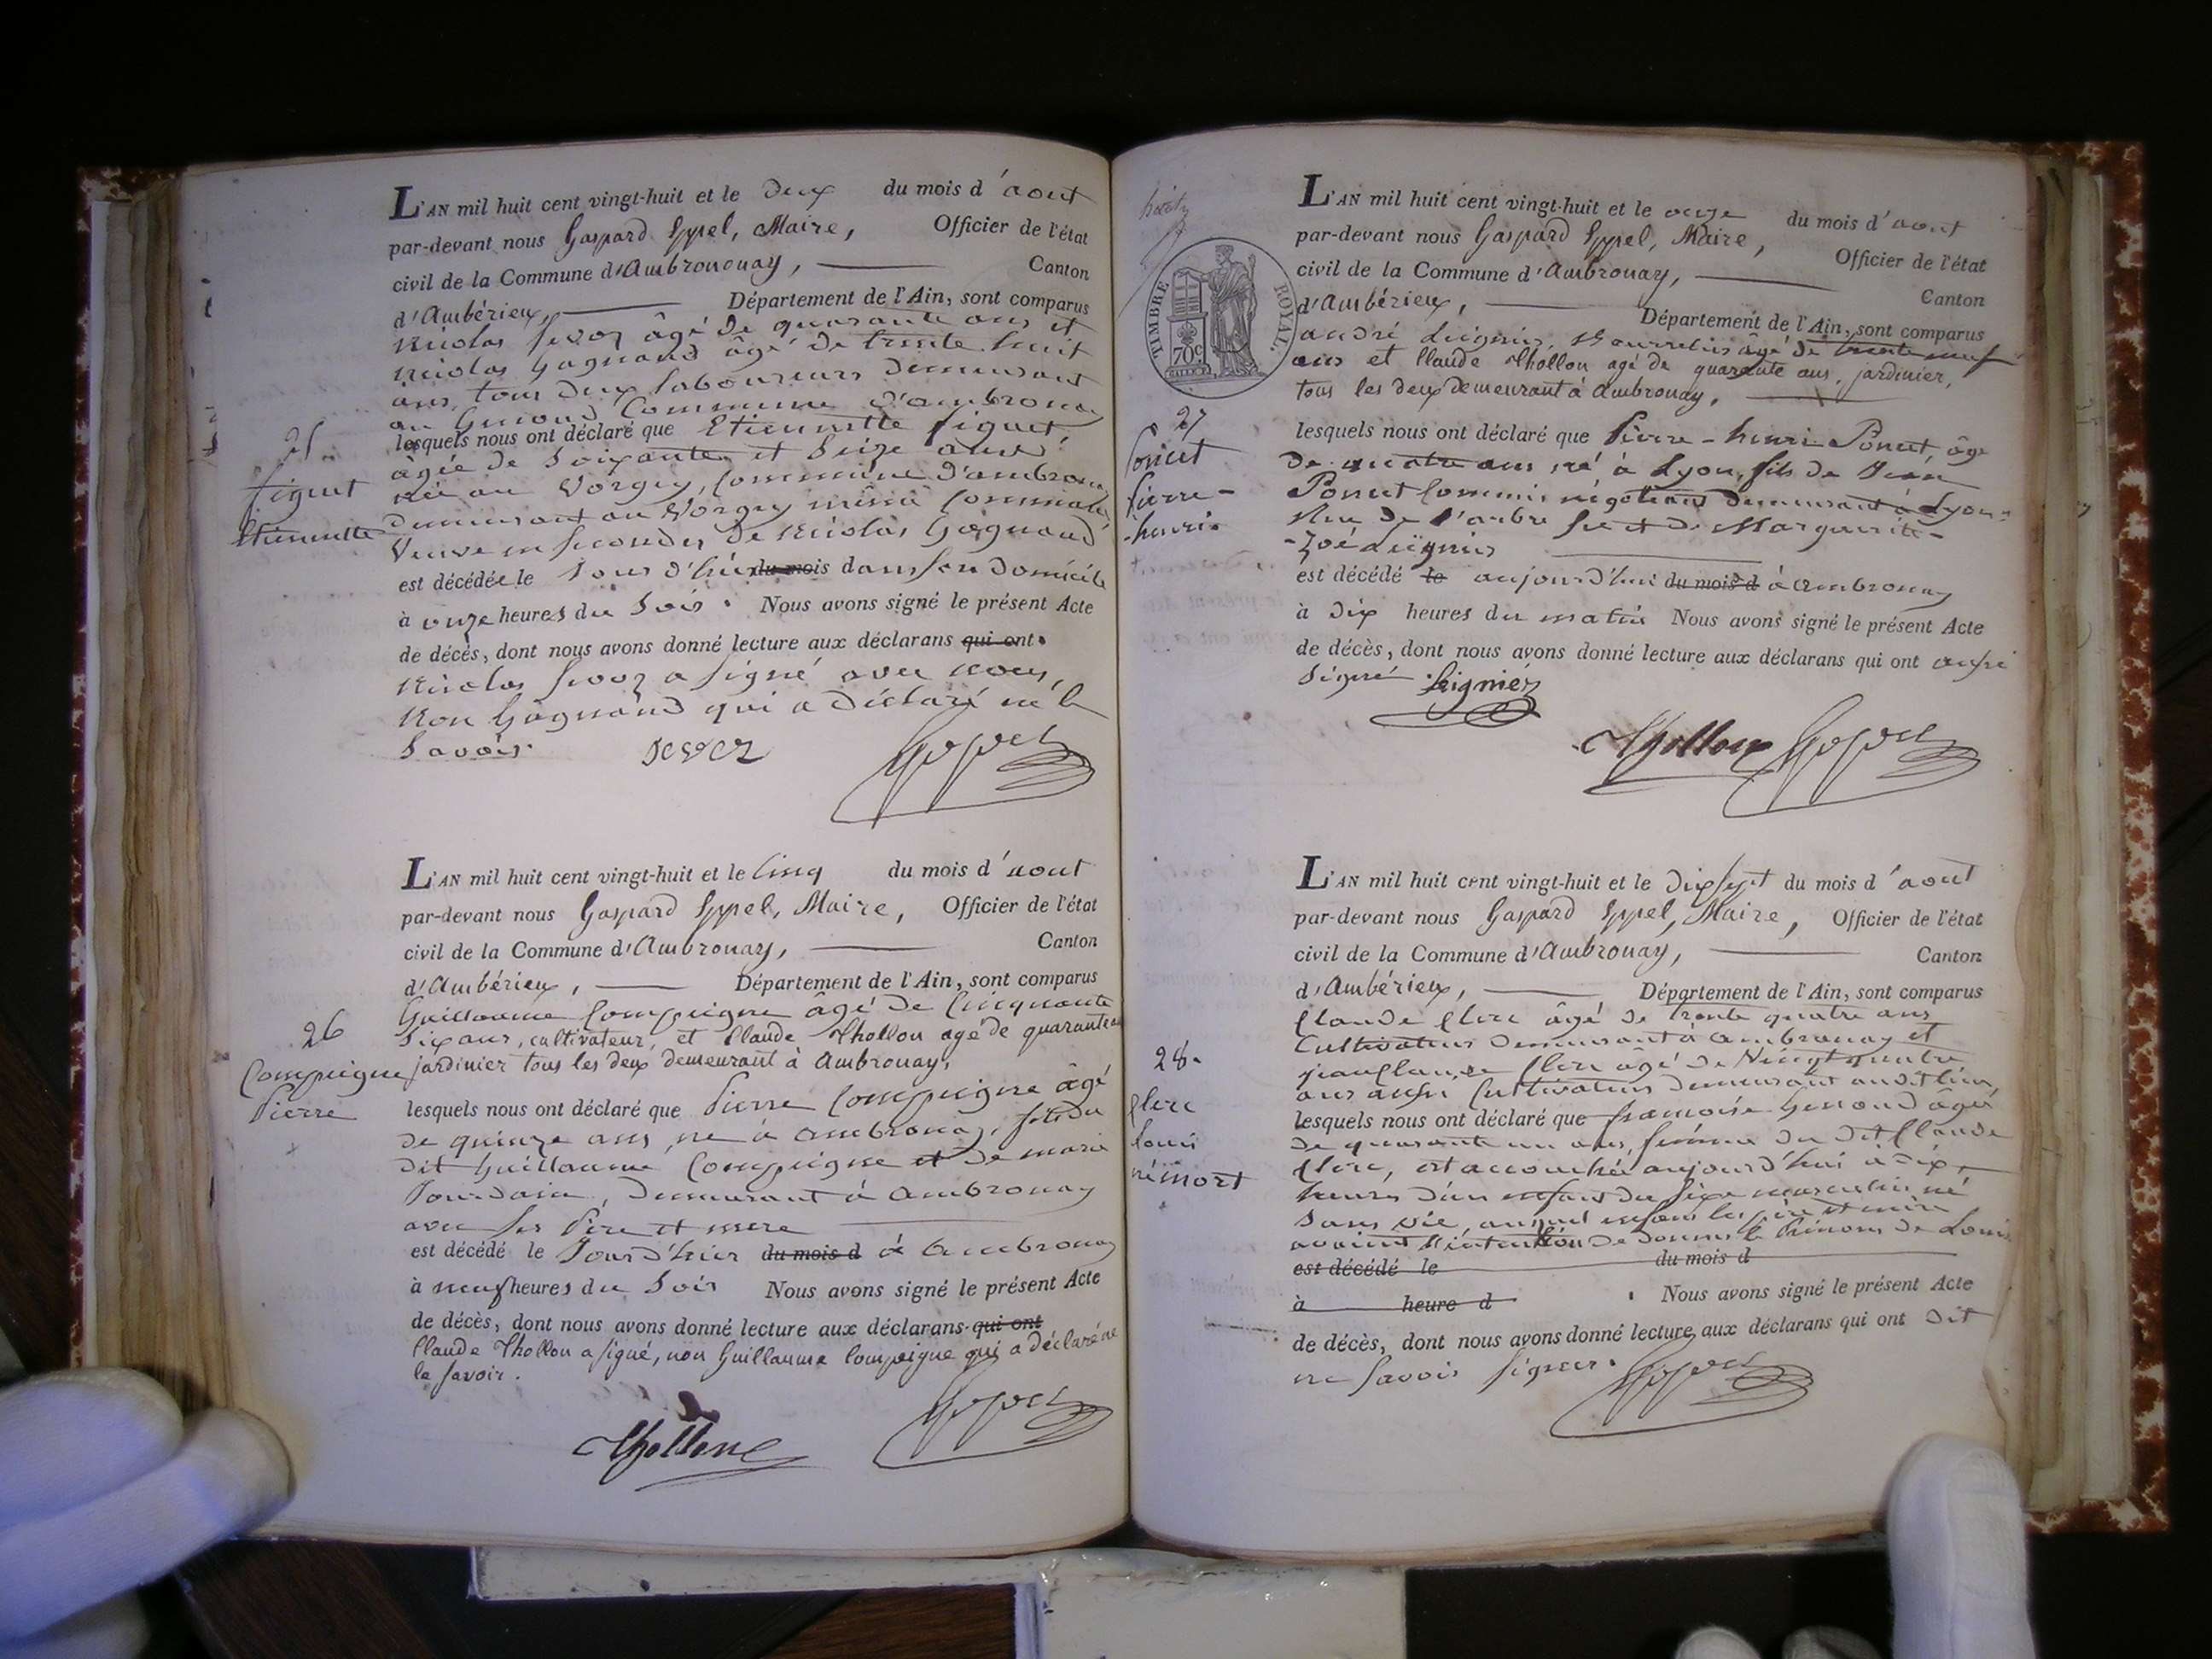 L'AN mil huit cent vingt-huit et le deux du mois d'aout
par-devant nous Gaspard Eppel, Maire, Officier de l'état
civil de la Commune d'Ambronouay, Canton
d'Ambérieux, Département de l'Ain, sont comparus
Nicolas âgé de quarante ans et
Nicolas Gagnand âgé de trente huit
ans, tous deux laboureurs demeurant
au Commune d'ambronay
lesquels nous ont déclaré que Etiennette figuet,
âgée de Soixante et Seize ans
née au Vorgey, Commune d'ambronay
demeurant au Vorgey même Commune,
Veuve en secondes de Nicolas Gagnand
est décédée le Jour d'hier du mois dans son Domicile
à onze heures du Soir. Nous avons signé le présent Acte
de décès, dont nous avons donné lecture aux déclarans qui ont
Nicolas a signé avec nous,
Non Gagnand qui a déclaré ne le
Savoir.
figuet
Etiennette
L'AN mil huit cent vingt-huit et le Cinq du mois d'aout
par-devant nous Gaspard Eppel, Maire, Officier de l'état
civil de la Commune d'Ambronay, Canton
d'Ambérieux, Département de l'Ain, sont comparus
Guillaume Compeigne âgé de Cinquante
Six ans, cultivateur, et Claude Thollon agé de quarante ans
jardinier tous les deux demeurant à Ambronay,
lesquels nous ont déclaré que Pierre Compeigne âgé
de quinze ans, né à ambronay, fils du
dit Guillaume Compeigne et de marie
Jourdain, demeurant à ambronay
avec ses Père et mere
est décédé le Jour d'hier du mois d à ambronay
à neuf heures du Soir Nous avons signé le présent Acte
de décès, dont nous avons donné lecture aux déclarans qui ont
Claude Thollon a signé, non Guillaume Compeigne qui a déclaré ne
le savoir.
26
Compeigne
Pierre
Thollon
L'AN mil huit cent vingt-huit et le onze du mois d'aout
par-devant nous Gaspard Eppel, Maire, Officier de l'état
civil de la Commune d'Ambronay, Canton
d'Ambérieux, Département de l'Ain, sont comparus
andré Leignier, Bourrelier âgé de trente neuf
ans et Claude Thollon agé de quarante ans, jardinier,
tous les deux demeurant à Ambronay,
lesquels nous ont déclaré que Pierre-henri Poncet, âgé
de quatre ans, né à Lyon, fils de Jean
Poncet Commis négotiant demeurant à Lyon
Rue de l'arbre sec et de Marguerite-
-Zoé Leignier
est décédé le aujourd'hui du mois d à ambronay
à Dix heures du matin Nous avons signé le présent Acte
de décès, dont nous avons donné lecture aux déclarans qui ont aussi
Signé Leignier
Thollon
TIMBRE ROYAL.
70c
27
Poncet
Pierre-
-henri
L'AN mil huit cent vingt-huit et le Dix sept du mois d'aout
par-devant nous Gaspard Eppel, Maire, Officier de l'état
civil de la Commune d'Ambronay, Canton
d'Ambérieux, Département de l'Ain, sont comparus
Claude Clerc âgé de trente quatre ans
Cultivateur demeurant à ambronay et
jean Clerc âgé de Vingt quatre
ans aussi Cultivateur demeurant audit lieu,
lesquels nous ont déclaré que françoise Genoud âgée
de quarante un ans, femme du dit Claude
Clerc, est accouchée aujourd'hui à Dix
heures d'un enfant du sexe masculin né
Sans vie, auquel enfant les père et mère
avaient l'intention de donner le Prénom de Louis
est décédé le du mois d
à heure d Nous avons signé le présent Acte
de décès, dont nous avons donné lecture aux déclarans qui ont Dit
ne Savoir signer.
28.
Clerc
Louis
né mort